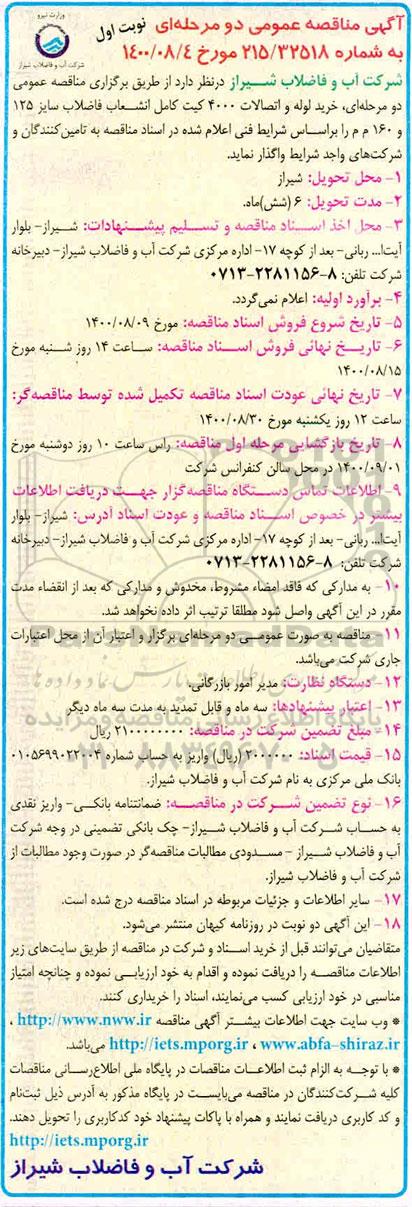 آگهی مناقصه عمومی دو مرحله‌ای
نوبت اول
به شماره ۲۱۵/۳۲۵۱۸ مورخ ۱۴۰۰/۰۸/۴
وزارت نیرو
شرکت آب و فاضلاب شیراز
شرکت آب و فاضلاب شیراز درنظر دارد از طریق برگزاری مناقصه عمومی
دو مرحله‌ای، خرید لوله و اتصالات ۴۰۰۰ کیت کامل انشعاب فاضلاب سایز ۱۲۵
و ۱۶۰ م م را براساس شرایط فنی اعلام شده در اسناد مناقصه به تامین‌کنندگان و
شرکت‌های واجد شرایط واگذار نماید.
۱- محل تحویل: شیراز
۲- مدت تحویل: ۶ (شش)ماه.
۳- محل اخذ اسناد مناقصه و تسلیم پیشنهادات: شیراز- بلوار
آیت‌ا... ربانی- بعد از کوچه ۱۷- اداره مرکزی شرکت آب و فاضلاب شیراز- دبیرخانه
شرکت تلفن: ۸-۲۲۸۱۱۵۶-۰۷۱۳
۴- برآورد اولیه: اعلام نمی‌گردد.
۵- تاریخ شروع فروش اسناد مناقصه: مورخ ۱۴۰۰/۰۸/۰۹
۶- تاریخ نهائی فروش اسناد مناقصه: ساعت ۱۴ روز شنبه مورخ
۱۴۰۰/۰۸/۱۵
۷- تاریخ نهائی عودت اسناد مناقصه تکمیل شده توسط مناقصه‌گر:
ساعت ۱۲ روز یکشنبه مورخ ۱۴۰۰/۰۸/۳۰
۸- تاریخ بازگشایی مرحله اول مناقصه: راس ساعت ۱۰ روز دوشنبه مورخ
۱۴۰۰/۰۹/۰۱ در محل سالن کنفرانس شرکت
۹- اطلاعات تماس دستگاه مناقصه‌گزار جهت دریافت اطلاعات
بیشتر در خصوص اسناد مناقصه و عودت اسناد آدرس: شیراز- بلوار
آیت‌ا... ربانی- بعد از کوچه ۱۷- اداره مرکزی شرکت آب و فاضلاب شیراز- دبیرخانه
شرکت تلفن: ۸-۲۲۸۱۱۵۶-۰۷۱۳
۱۰- به مدارکی که فاقد امضاء مشروط، مخدوش و مدارکی که بعد از انقضاء مدت
مقرر در این آگهی واصل شود مطلقا ترتیب اثر داده نخواهد شد.
۱۱- مناقصه به صورت عمومی دو مرحله‌ای برگزار و اعتبار آن از محل اعتبارات
جاری شرکت می‌باشد.
۱۲- دستگاه نظارت: مدیر امور بازرگانی.
۱۳- اعتبار پیشنهادها: سه ماه و قابل تمدید به مدت سه ماه دیگر
۱۴- مبلغ تضمین شرکت در مناقصه: ۲۱۰۰۰۰۰۰۰۰ ریال
۱۵- قیمت اسناد: ۲۰۰۰۰۰۰ (ریال) واریز به حساب شماره ۰۱۰۵۶۹۹۰۲۲۰۰۴
بانک ملی مرکزی به نام شرکت آب و فاضلاب شیراز.
۱۶- نوع تضمین شرکت در مناقصه: ضمانتنامه بانکی- واریز نقدی
به حساب شرکت آب و فاضلاب شیراز- چک بانکی تضمینی در وجه شرکت
آب و فاضلاب شیراز - مسدودی مطالبات مناقصه‌گر در صورت وجود مطالبات از
شرکت آب و فاضلاب شیراز.
۱۷- سایر اطلاعات و جزئیات مربوطه در اسناد مناقصه درج شده است.
۱۸- این آگهی دو نوبت در روزنامه کیهان منتشر می‌شود.
متقاضیان می‌توانند قبل از خرید اسناد و شرکت در مناقصه از طریق سایت‌های زیر
اطلاعات مناقصه را دریافت نموده و اقدام به خود ارزیابی نموده و چنانچه امتیاز
مناسبی در خود ارزیابی کسب می‌نمایند، اسناد را خریداری کنند.
* وب سایت جهت اطلاعات بیشتر آگهی مناقصه http://www.nww.ir ،
http://iets.mporg.ir ، www.abfa-shiraz.ir می‌باشد.
* با توجه به الزام ثبت اطلاعات مناقصات در پایگاه ملی اطلاع‌رسانی مناقصات
کلیه شرکت‌کنندگان در مناقصه می‌بایست در پایگاه مذکور به آدرس ذیل ثبت‌نام
و کد کاربری دریافت نمایند و همراه با پاکات پیشنهاد خود کدکاربری را تحویل دهند.
http://iets.mporg.ir
شرکت آب و فاضلاب شیراز